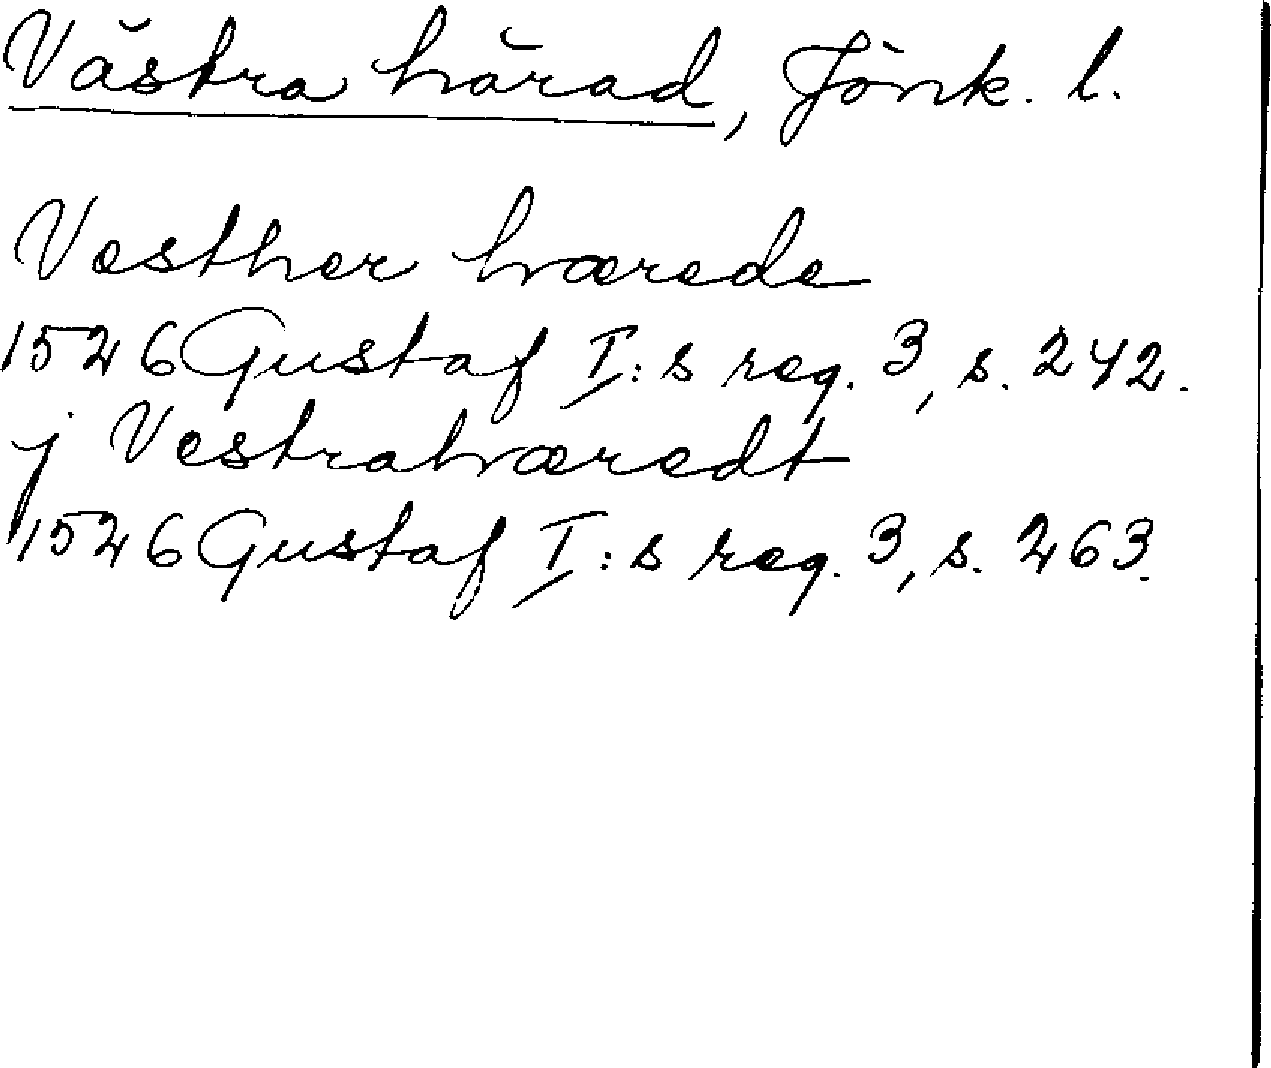 Västra härad, Jönk. l.
Vesther hærede
1526 Gustaf I:s reg. 3, s. 242.
j Vestrahæredt
1526 Gustaf I:s reg. 3, s. 263.